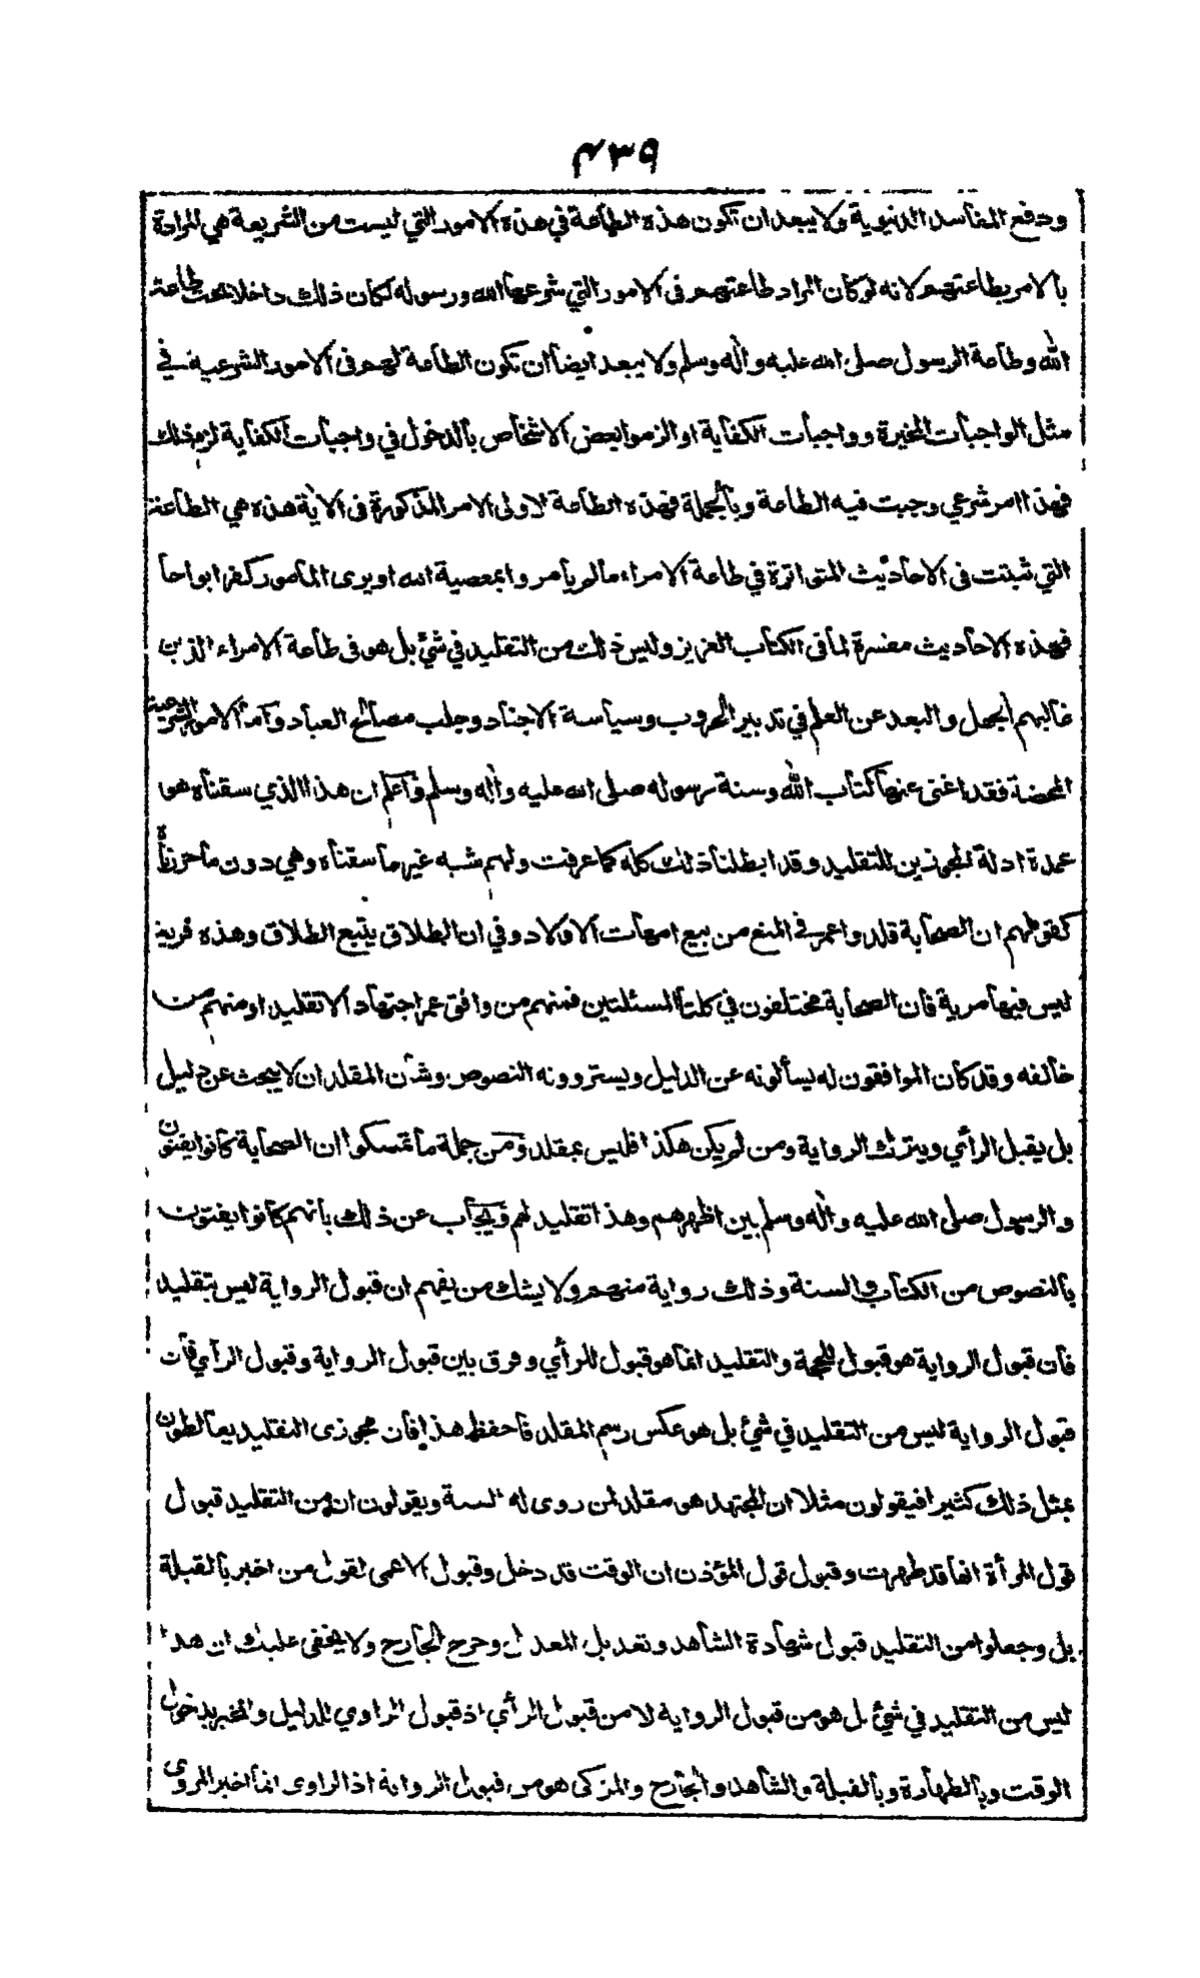 ٤٣٩
ودفع المفاسد الدنيوية ولا يبعد ان تكون هذه الطاعة في هذه الامور التي ليست من الشريعة هي المرادة
بالامر بطاعتهم لانه لو كان المراد طاعتهم فى الامور التي شرعها الله ورسوله لكان ذلك داخلا تحت طاعة
الله وطاعة الرسول صلى الله عليه واٰله وسلم ولا يبعد ايضا ان تكون الطاعة لهم فى الامور الشرعية في
مثل الواجبات المخيرة وواجبات الكفاية او الزموا بعض الاشخاص بالدخول في واجبات الكفاية لزم ذلك
فهذا امر شرعي وجبت فيه الطاعة وبالجملة فهذه الطاعة لاولى الامر المذكورة فى الاٰية هذه هي الطاعة
التي ثبتت فى الاحاديث المتواترة في طاعة الامراء مالم يأمروا بمعصية الله او يرى المأمور كفرا بواحا
فهذه الاحاديث مفسرة لما فى الكتاب العزيز وليس ذلك من التقليد في شئ بل هو فى طاعة الامراء الذين
غالبهم الجهل والبعد عن العلم في تدبير الحروب وسياسة الاجناد وجلب مصالح العباد وآما الامور الشرعية
المحضة فقد اغنى عنها كتاب الله وسنة رسوله صلى الله عليه واٰله وسلم وآعلم ان هذا الذي سقناه هو
عمدة ادلة المجوزين للتقليد وقد ابطلنا ذلك كله كما عرفت ولهم شبه غير ما سقناه وهي دون ما حررناه
كقولهم ان الصحابة قلدوا عمر في المنع من بيع امهات الاولاد وفي ان الطلاق يتبع الطلاق وهذه فرية
ليس فيها مرية فان الصحابة مختلفون في كلتا المسئلتين فمنهم من وافق عمر اجتهادا لا تقليدا ومنهم من
خالفه وقد كان الموافقون له يسألونه عن الدليل ويستروونه النصوص وشأن المقلد ان لا يبحث عن دليل
بل يقبل الرأي ويترك الرواية ومن لم يكن هكذا فليس بمقلد ومن جملة ما تمسكوا ان الصحابة كانوا يفتون
والرسول صلى الله عليه واٰله وسلم بين اظهرهم وهذا تقليد لهم ويجاب عن ذلك بانهم كانوا يفتون
بالنصوص من الكتاب والسنة وذلك رواية منهم ولا يشك من يفهم ان قبول الرواية ليس بتقليد
فان قبول الرواية هو قبول للحجة والتقليد انما هو قبول للرأي وفرق بين قبول الرواية وقبول الرأي فان
قبول الرواية ليس من التقليد في شئ بل هو عكس رسم المقلد فاحفظ هذا فان مجوزى التقليد يغالطون
بمثل ذلك كثيرا فيقولون مثلا ان المجتهد هو مقلد لمن روى له السنة ويقولون ان من التقليد قبول
قول المرأة انها قد طهرت وقبول قول المؤذن ان الوقت قد دخل وقبول الاعمى لقول من اخبر بالقبلة
بل وجعلوا من التقليد قبول شهادة الشاهد وتعديل المعدل وجرح الجارح ولا يخفى عليك ان هذا
ليس من التقليد في شئ بل هو من قبول الرواية لا من قبول الرأي اذ قبول الراوي للدليل والمخبر بدخول
الوقت وبالطهارة وبالقبلة والشاهد والجارح والمزكى هو من قبول الرواية اذ الراوى انما اخبر المروى